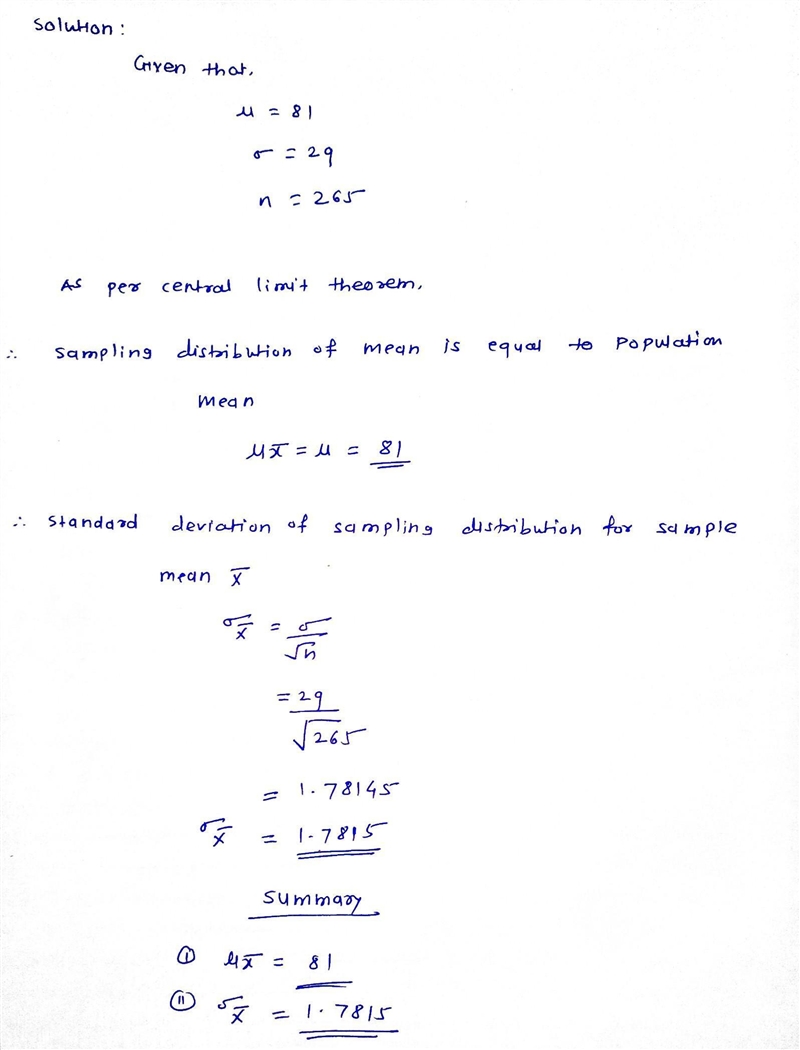 Solution :
Given that,
μ = 81
σ = 29
n = 265
As per central limit theorem,
∴ Sampling distribution of mean is equal to Population
Mean
μx̅ = μ = 81
∴ Standard deviation of sampling distribution for sample
mean x̅
σx̅ = σ
√n
= 29
√265
= 1.78145
σx̅ = 1.7815
Summary
① μx̅ = 81
⑪ σx̅ = 1.7815